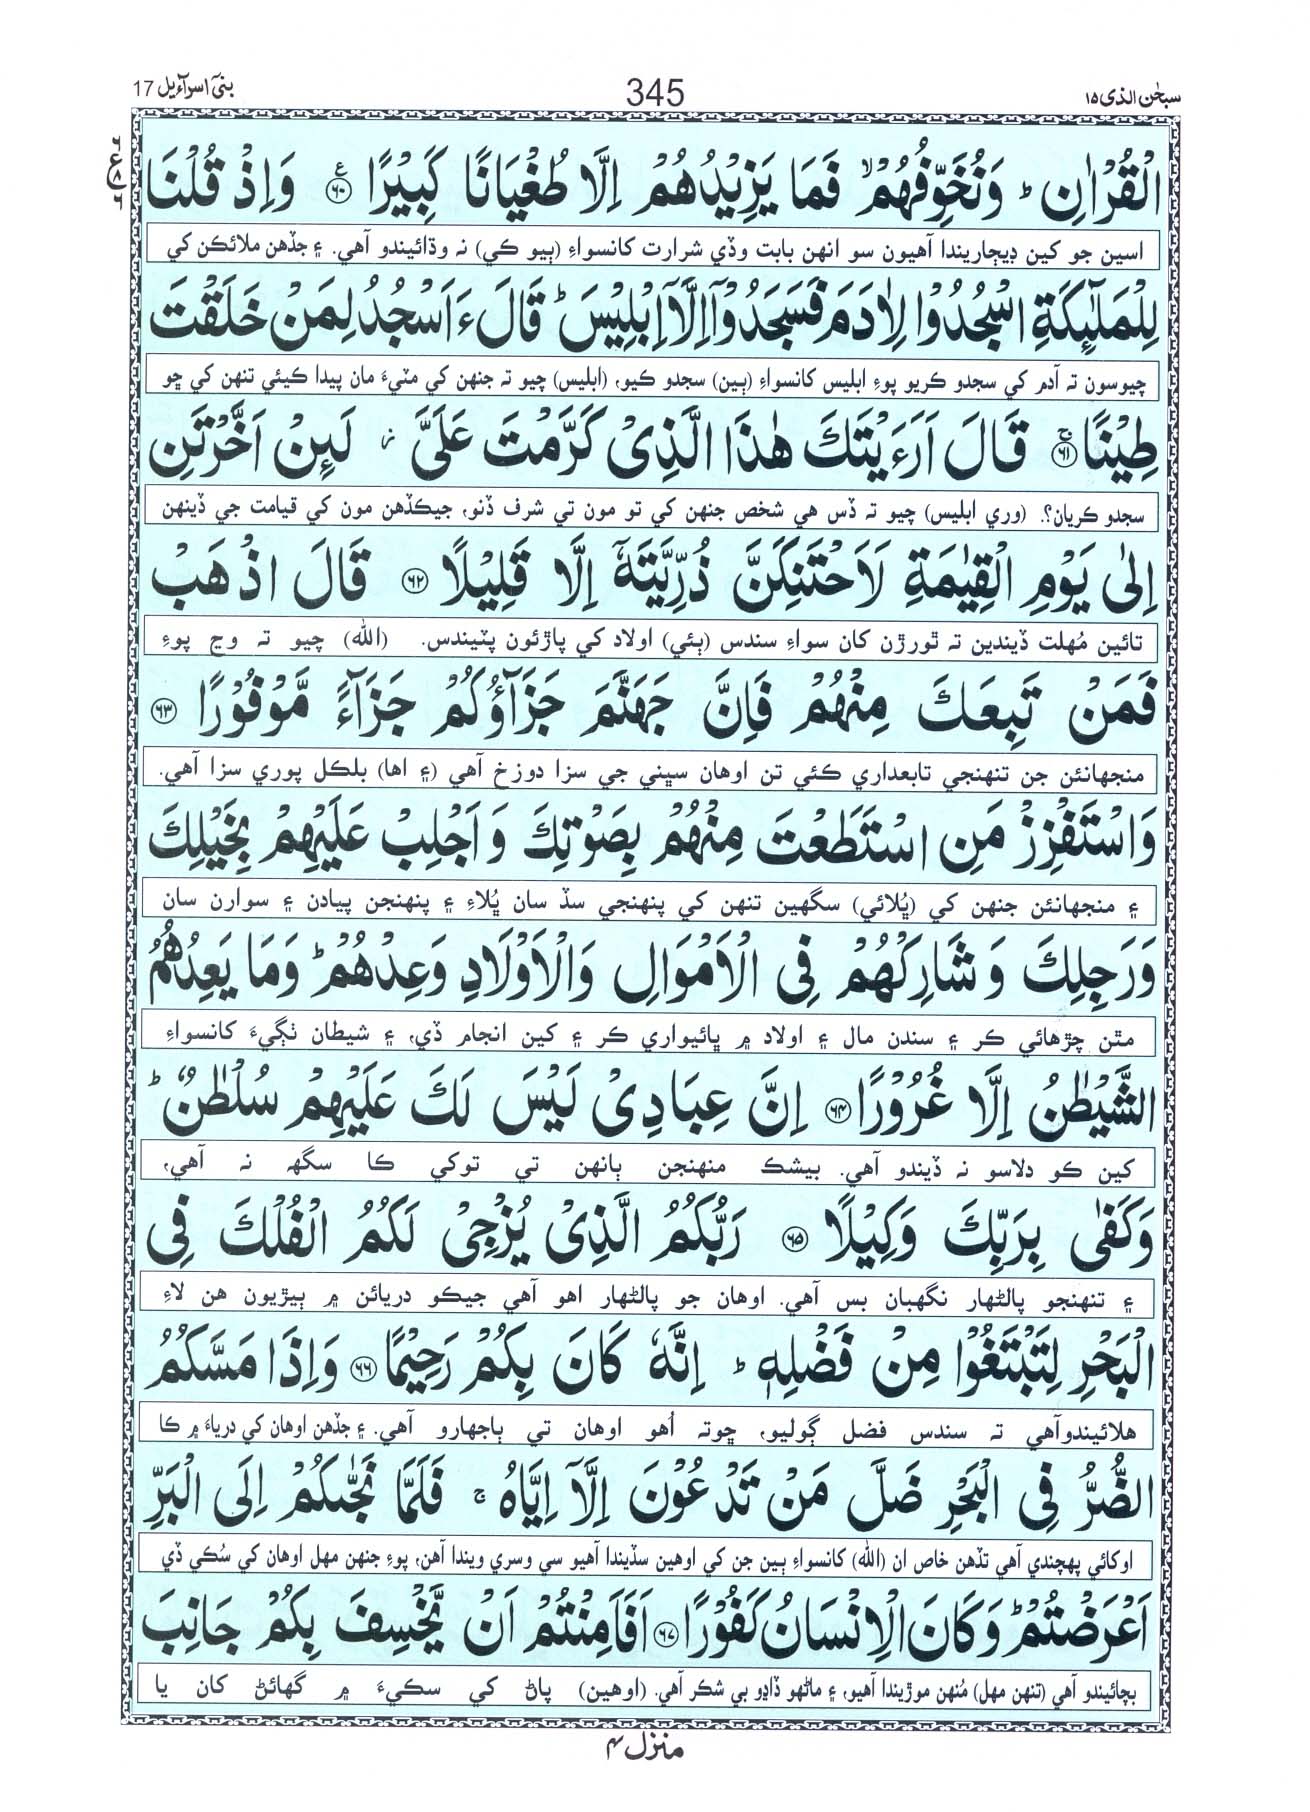 سبحٰن الذی ۱۵
345
بنیٓ اسرآءیل 17
الْقُرْاٰنِ ؕ وَنُخَوِّفُهُمْ ۙ فَمَا یَزِیْدُهُمْ اِلَّا طُغْیَانًا كَبِیْرًا ۶۰ ع وَاِذْ قُلْنَا
اسين جو کين ڊيڄاريندا آهيون سو انهن بابت وڏي شرارت کانسواءِ (ٻيو ڪي) نہ وڌائيندو آهي. ۽ جڏهن ملائڪن کي
لِلْمَلٰٓئِكَةِ اسْجُدُوْا لِاٰدَمَ فَسَجَدُوْۤا اِلَّاۤ اِبْلِیْسَ ؕ قَالَ ءَاَسْجُدُ لِمَنْ خَلَقْتَ
چيوسون تہ آدم کي سجدو ڪريو پوءِ ابليس کانسواءِ (ٻين) سجدو ڪيو، (ابليس) چيو تہ جنهن کي مٽيءَ مان پيدا ڪيئي تنهن کي ڇو
طِیْنًا ۶۱ ج قَالَ اَرَءَیْتَكَ هٰذَا الَّذِیْ كَرَّمْتَ عَلَیَّ ز لَئِنْ اَخَّرْتَنِ
سجدو ڪريان؟. (وري ابليس) چيو تہ ڏس هي شخص جنهن کي تو مون تي شرف ڏنو، جيڪڏهن مون کي قيامت جي ڏينهن
اِلٰى یَوْمِ الْقِیٰمَةِ لَاَحْتَنِكَنَّ ذُرِّیَّتَهٗۤ اِلَّا قَلِیْلًا ۶۲ قَالَ اذْهَبْ
تائين مُهلت ڏيندين تہ ٿورڙن کان سواءِ سندس (ٻئي) اولاد کي پاڙئون پٽيندس. (الله) چيو تہ وڃ پوءِ
فَمَنْ تَبِعَكَ مِنْهُمْ فَاِنَّ جَهَنَّمَ جَزَآؤُكُمْ جَزَآءً مَّوْفُوْرًا ۶۳
منجهانئن جن تنهنجي تابعداري ڪئي تن اوهان سڀني جي سزا دوزخ آهي (۽ اها) بلڪل پوري سزا آهي.
وَاسْتَفْزِزْ مَنِ اسْتَطَعْتَ مِنْهُمْ بِصَوْتِكَ وَاَجْلِبْ عَلَیْهِمْ بِخَیْلِكَ
۽ منجهانئن جنهن کي (ڀُلائي) سگهين تنهن کي پنهنجي سڏ سان ڀُلاءِ ۽ پنهنجن پيادن ۽ سوارن سان
وَرَجِلِكَ وَشَارِكْهُمْ فِی الْاَمْوَالِ وَالْاَوْلَادِ وَعِدْهُمْ ؕ وَمَا یَعِدُهُمُ
مٿن چڙهائي ڪر ۽ سندن مال ۽ اولاد ۾ ڀائيواري ڪر ۽ کين انجام ڏي، ۽ شيطان ٺڳيءَ کانسواءِ
الشَّیْطٰنُ اِلَّا غُرُوْرًا ۶۴ اِنَّ عِبَادِیْ لَیْسَ لَكَ عَلَیْهِمْ سُلْطٰنٌ ؕ
کين ڪو دلاسو نہ ڏيندو آهي. بيشڪ منهنجن ٻانهن تي توکي ڪا سگهہ نہ آهي،
وَكَفٰى بِرَبِّكَ وَكِیْلًا ۶۵ رَبُّكُمُ الَّذِیْ یُزْجِیْ لَكُمُ الْفُلْكَ فِی
۽ تنهنجو پالڻهار نگهبان بس آهي. اوهان جو پالڻهار اهو آهي جيڪو دريائن ۾ ٻيڙيون هن لاءِ
الْبَحْرِ لِتَبْتَغُوْا مِنْ فَضْلِهٖ ؕ اِنَّهٗ كَانَ بِكُمْ رَحِیْمًا ۶۶ وَاِذَا مَسَّكُمُ
هلائيندوآهي تہ سندس فضل ڳوليو، ڇوتہ اُهو اوهان تي ٻاجهارو آهي. ۽ جڏهن اوهان کي درياءَ ۾ ڪا
الضُّرُّ فِی الْبَحْرِ ضَلَّ مَنْ تَدْعُوْنَ اِلَّاۤ اِیَّاهُ ۚ فَلَمَّا نَجّٰىكُمْ اِلَى الْبَرِّ
اوکائي پهچندي آهي تڏهن خاص ان (الله) کانسواءِ ٻين جن کي اوهين سڏيندا آهيو سي وسري ويندا آهن، پوءِ جنهن مهل اوهان کي سُڪي ڏي
اَعْرَضْتُمْ ؕ وَكَانَ الْاِنْسَانُ كَفُوْرًا ۶۷ اَفَاَمِنْتُمْ اَنْ یَّخْسِفَ بِكُمْ جَانِبَ
بچائيندو آهي (تنهن مهل) مُنهن موڙيندا آهيو، ۽ ماڻهو ڏاڍو بي شڪر آهي. (اوهين) پاڻ کي سڪيءَ ۾ گهائڻ کان يا
منزل ۴